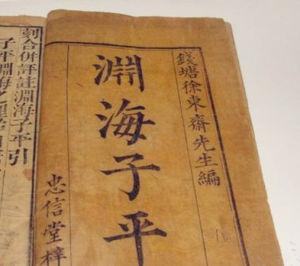 錢塘徐東齋先生編
淵海子平
忠信堂梓
刻合併評註淵海子平引